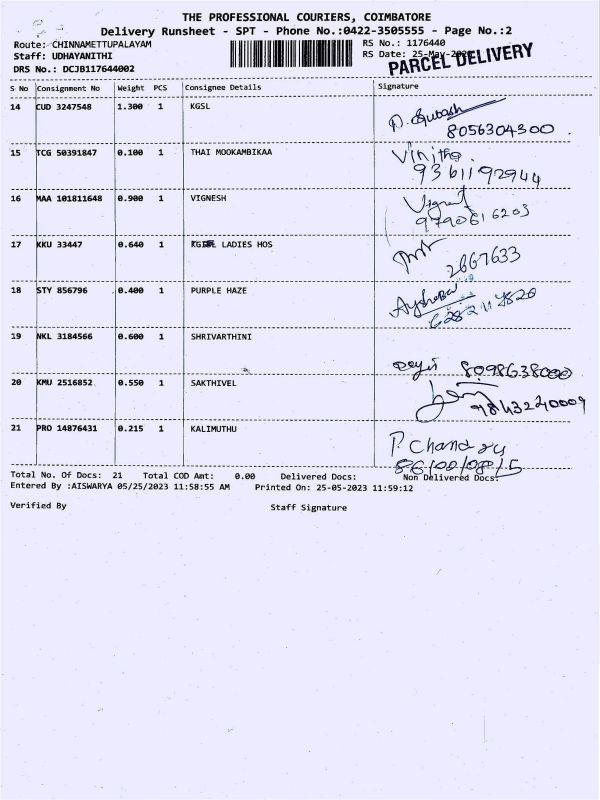 THE PROFESSIONAL COURIERS, COIMBATORE
Delivery Runsheet - SPT - Phone No.:0422-3505555 - Page No.:2
Route: CHINNAMETTUPALAYAM RS No.: 1176440
Staff: UDHAYANITHI RS Date: 25-May-2023
PARCEL DELIVERY
DRS No.: DCJB117644002
S No Consignment No Weight PCS Consignee Details Signature
14 CUD 3247548 1.300 1 KGSL
8056304300
15 TCG 50391847 0.100 1 THAI MOOKAMBIKAA Vinitha
9361192944
16 MAA 101811648 0.900 1 VIGNESH
9790616203
17 KKU 33447 0.640 1 LADIES HOS
2667633
18 STY 856796 0.400 1 PURPLE HAZE
19 NKL 3184566 0.600 1 SHRIVARTHINI
8098638000
20 KMU 2516852 0.550 1 SAKTHIVEL
9843240009
21 PRO 14876431 0.215 1 KALIMUTHU
Total No. Of Docs: 21 Total COD Amt: 0.00 Delivered Docs: Non Delivered Docs:
Entered By :AISWARYA 05/25/2023 11:58:55 AM Printed On: 25-05-2023 11:59:12
Verified By Staff Signature